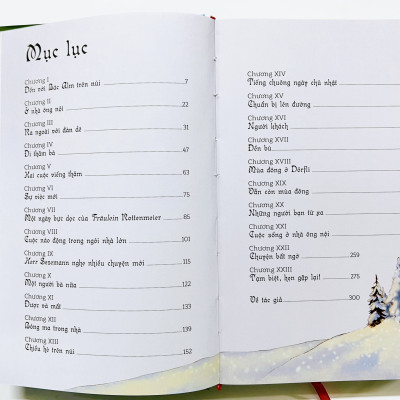 Mục lục
Chương I
Đến với Bác Alm trên núi 7
Chương II
Ở nhà ông nội 22
Chương III
Ra ngoài với đàn dê 31
Chương IV
Đi thăm bà 47
Chương V
Hai cuộc viếng thăm 63
Chương VI
Sự việc mới 75
Chương VII
Một ngày bực dọc của Fräulein Rottenmeier 85
Chương VIII
Cuộc náo động trong ngôi nhà lớn 101
Chương IX
Herr Sesemann nghe nhiều chuyện mới 115
Chương X
Một người bà nữa 122
Chương XI
Được và mất 133
Chương XII
Bóng ma trong nhà 139
Chương XIII
Chiều hè trên núi 152
Chương XIV
Tiếng chuông ngày chủ nhật
Chương XV
Chuẩn bị lên đường
Chương XVI
Người khách
Chương XVII
Đền bù
Chương XVIII
Mùa đông ở Dörfli
Chương XIX
Vẫn còn mùa đông
Chương XX
Những người bạn từ xa
Chương XXI
Cuộc sống ở nhà ông nội
Chương XXII
Chuyện bất ngờ 259
Chương XXIII
Tạm biệt, hẹn gặp lại! 275
Về tác giả 300